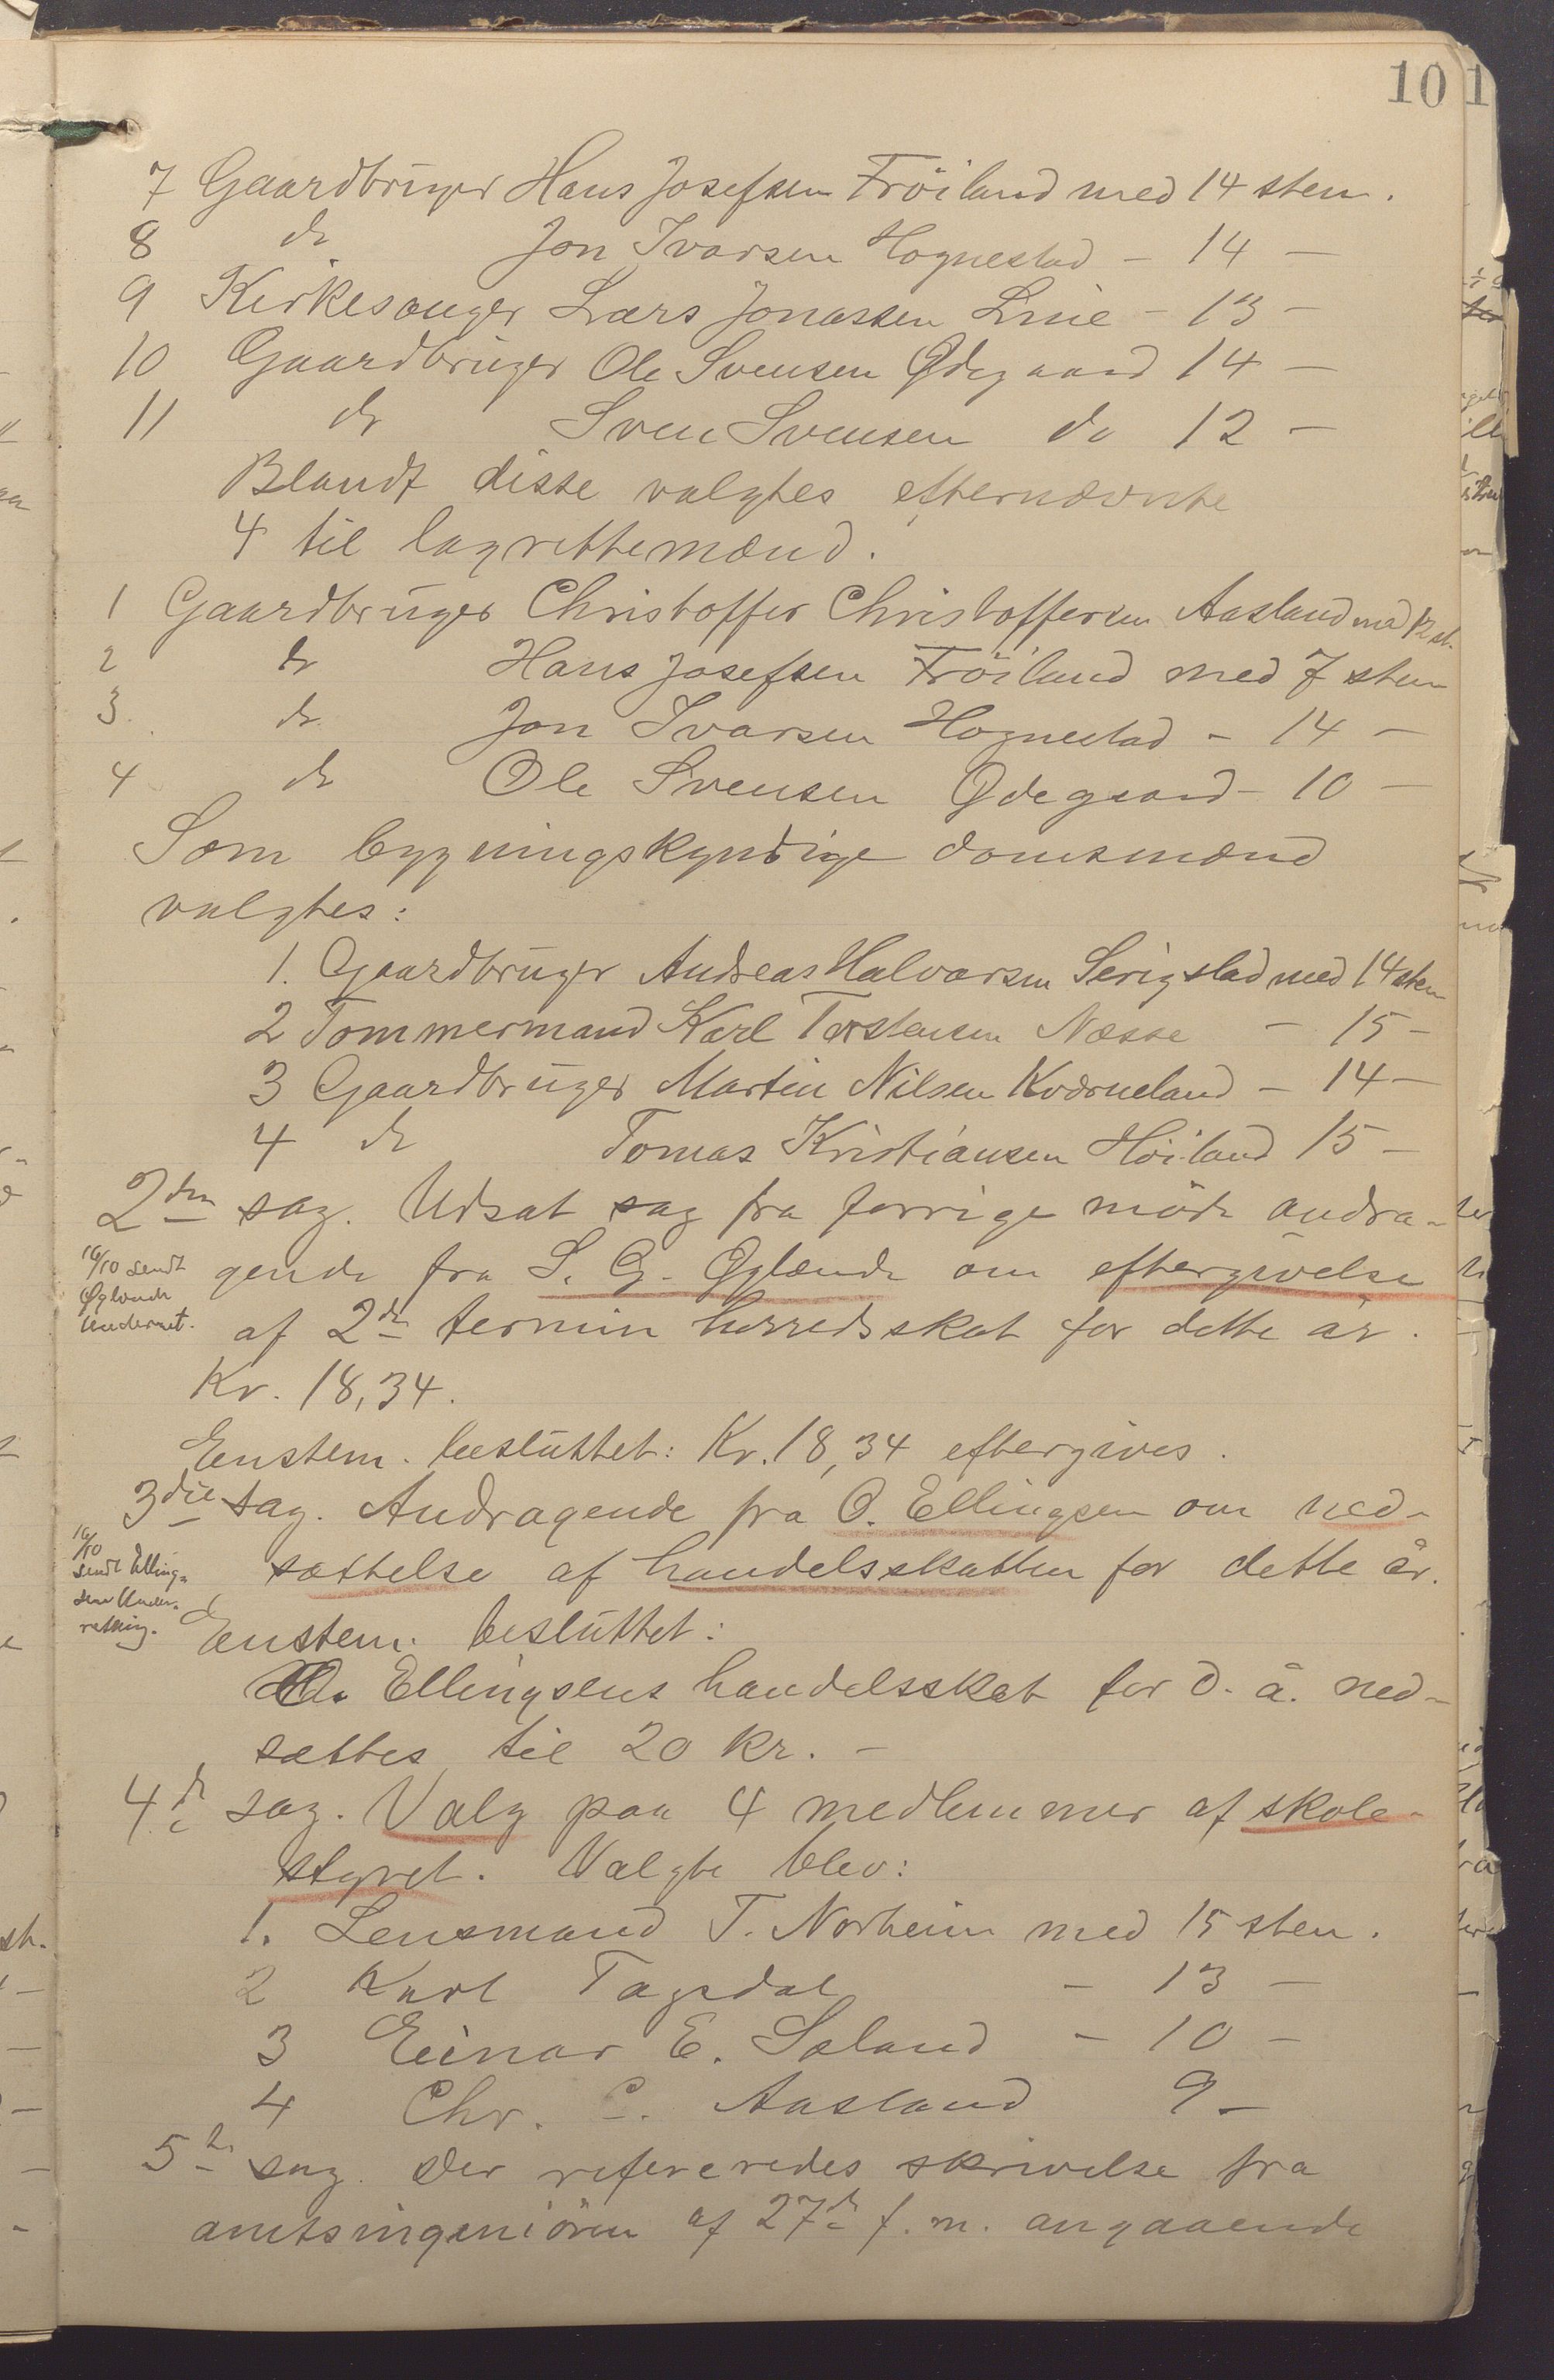 10
7 Gaardbruger Hans Josefsen Fröiland med 14 stem.
8 do Jon Ivarsen Hognestad - 14 -
9 Kirkesanger Lars Jonassen Line - 13 -
10 Gaardbruger Ole Svensen Ødegaard 14 -
11 do Sven Svensen do 12 -
Blandt disse valgtes efternævnte
4 til lagrettemænd.
1 Gaardbruger Christoffer Christoffersen Aasland med 12 st.
2 do Hans Josefsen Fröiland med 7 stem
3. do Jon Ivarsen Hognestad - 14 -
4 do Ole Svensen Ødegaard - 10 -
Som bygningskyndige domsmænd
valgtes:
1. Gaardbruger Andreas Halvorsen Serigstad med 14 stem
2 Tømmermand Karl Torstensen Næsse - 15 -
3 Gaardbruger Martin Nilsen Kværneland - 14 -
4 do Tomas Kristiansen Höiland 15 -
2den sag. Udsat sag fra forrige möde andra-
16/10 sendt
Øglænde
underret.
gende fra S. G. Øglænde om eftergivelse
af 2den termin herredsskat for dette år.
Kr. 18,34.
Enstem. besluttet: Kr. 18,34 eftergives.
3die sag. Andragende fra O. Ellingsen om ned-
16/10
sendt Elling-
sen Under-
retning.
sættelse af handelsskatten for dette år.
Enstem. besluttet:
O. Ellingsens handelsskat for d. å. ned-
sættes til 20 kr. -
4de sag. Valg paa 4 medlemmer af skole-
styret. Valgte blev:
1. Lensmand T. Norheim med 15 stem.
2 Karl Tagsdal - 13 -
3 Einar E. Sæland - 10 -
4 Chr. C. Aasland 9 -
5te sag. Der refereredes skrivelse fra
amtsingeniören af 27de f. m. angaaende